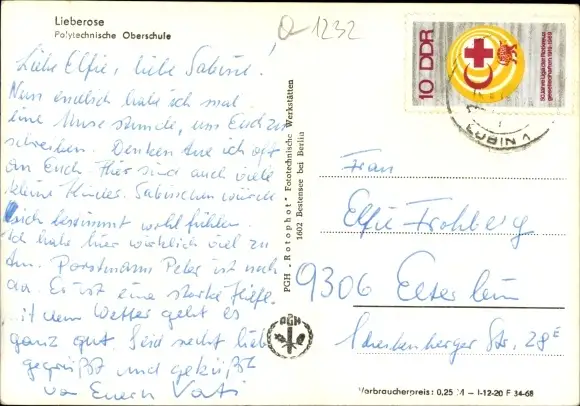 Lieberose
Polytechnische Oberschule
Q-1232
Liebe Elfie, liebe Sabine!
Nun endlich habe ich mal
eine Musestunde, um Euch zu
schreiben. Denken tue ich oft
an Euch. Hier sind auch viele
kleine Kinder. Sabinchen würde
sich bestimmt wohl fühlen.
Ich habe hier wirklich viel zu
tun. Porstmann Peter ist noch
da. Er ist eine starke Hilfe.
mit dem Wetter geht es
ganz gut. Seid recht lieb
gegrüßt und geküßt
von Euern Vati
PGH „Rotophot" Fototechnische Werkstätten
1602 Bestensee bei Berlin
PGH
10 DDR
50 Jahre Liga der Rotkreuz-
gesellschaften 1919-1969
LÜBIN 1
Frau
Elfie Frohberg
9306 Elterlein
Scheibenberger Str. 28E
Verbraucherpreis: 0,25 M I-12-20 F 34-68